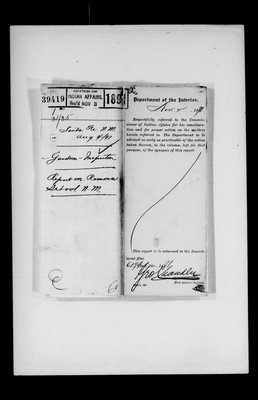 OFFICE OF
INDIAN AFFAIRS
Rec'd NOV 3
39419
189
Santa Fe N.M.
Aug 4/91
Gardner - Inspector
Report on Ramona
School N.M.
Department of the Interior,
Nov 2
Respectfully referred to the Commis-
sioner of Indian Affairs for his considera-
tion and for proper action on the matters
herein referred to. The Department to be
advised as early as practicable of the action
taken thereon, in the column, left for that
purpose, of the synopsis of this report
This report to be returned to the Depart-
ment files.
Geo Chandler